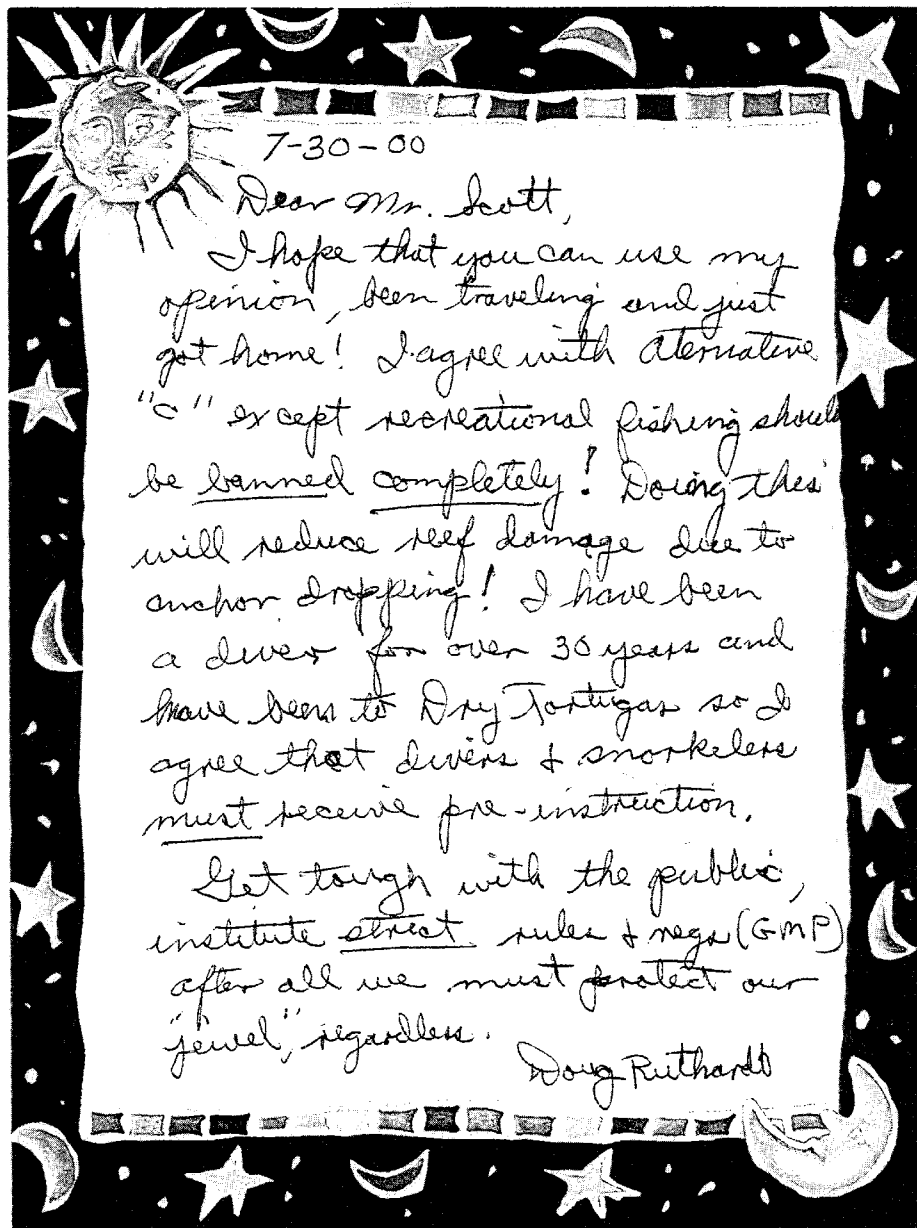 7-30-00
Dear Mr. Scott,
I hope that you can use my
opinion, been traveling and just
got home! I agree with Aternative
"C" except recreational fishing should
be banned completely! Doing this
will reduce reef damage due to
anchor dropping! I have been
a diver for over 30 years and
have been to Dry Tortugas so I
agree that divers & snorkelers
must receive pre-instruction.
Get tough with the public,
institute strict rules & regs (GMP)
after all we must protect our
"jewel", regardless.
Doug Ruthardt